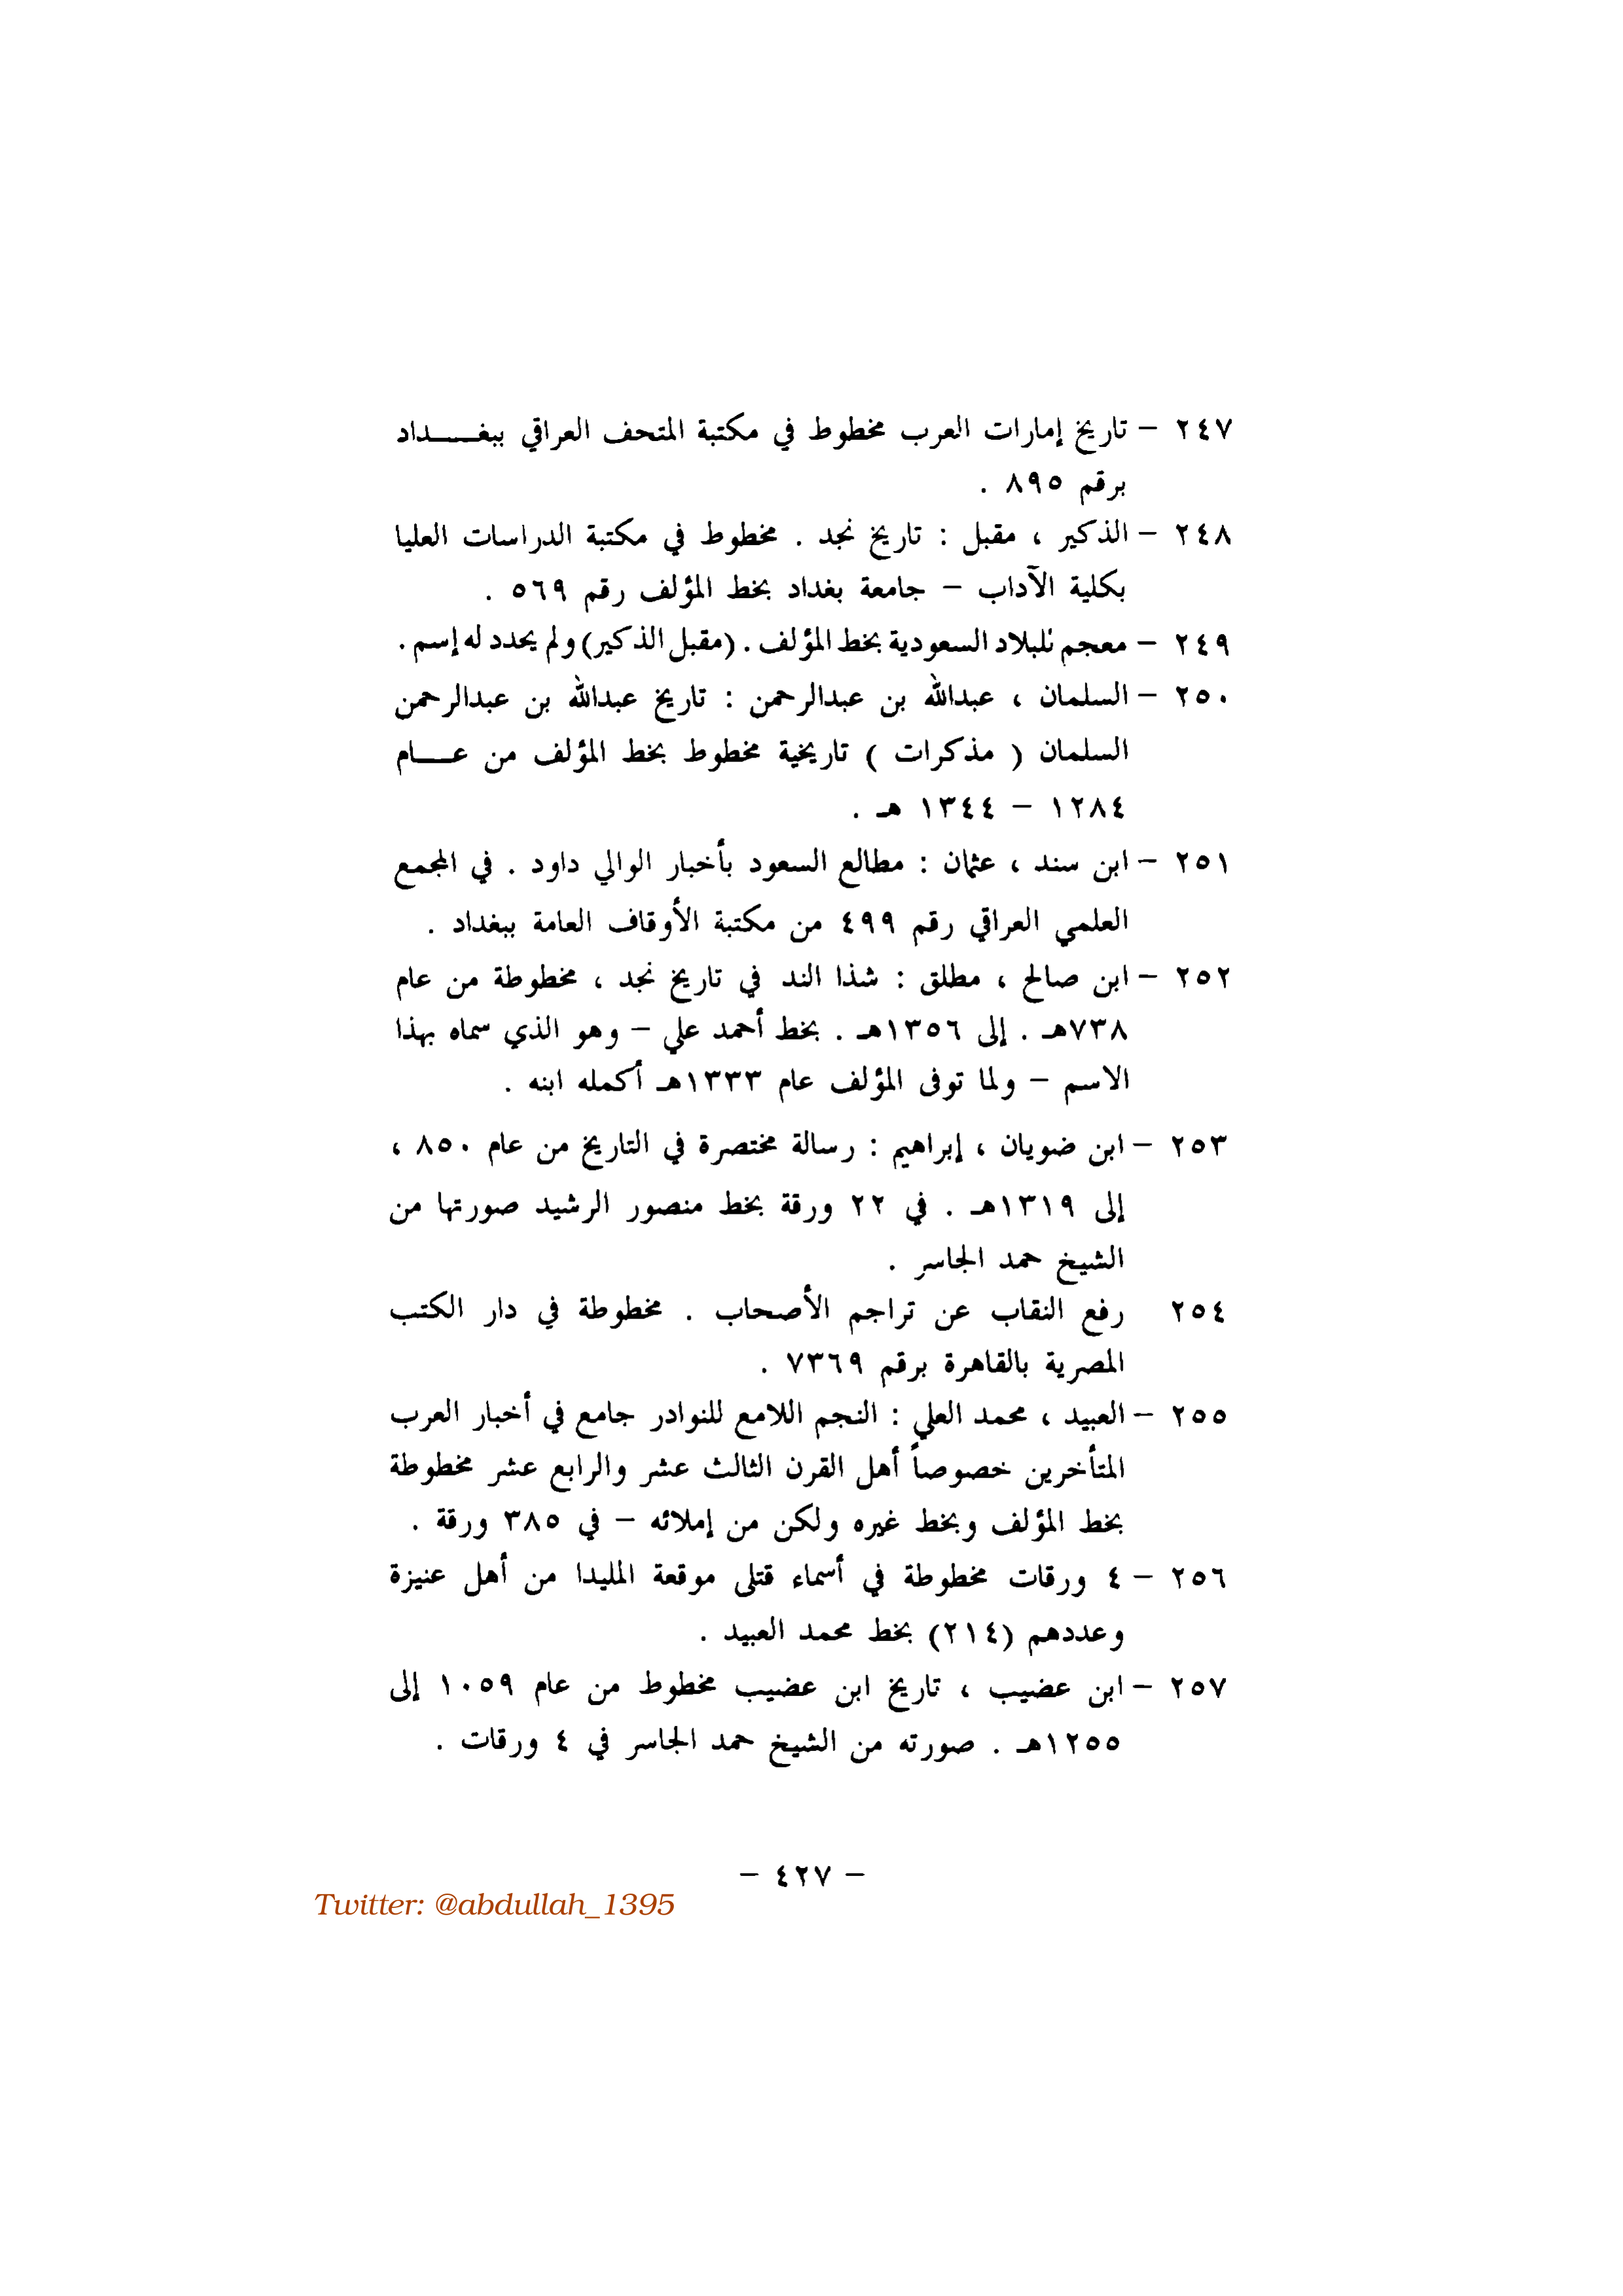 ٢٤٧ – تاريخ إمارات العرب مخطوط في مكتبة المتحف العراقي ببغـــــداد
برقم ٨٩٥ .
٢٤٨ – الذكير ، مقبل : تاريخ نجد . مخطوط في مكتبة الدراسات العليا
بكلية الآداب – جامعة بغداد بخط المؤلف رقم ٥٦٩ .
٢٤٩ – معجم للبلاد السعودية بخط المؤلف . (مقبل الذكير) ولم يحدد له إسم .
٢٥٠ – السلمان ، عبدالله بن عبدالرحمن : تاريخ عبدالله بن عبدالرحمن
السلمان ( مذكرات ) تاريخية مخطوط بخط المؤلف من عـــــام
١٢٨٤ – ١٣٤٤ هـ .
٢٥١ – ابن سند ، عثمان : مطالع السعود بأخبار الوالي داود . في المجمع
العلمي العراقي رقم ٤٩٩ من مكتبة الأوقاف العامة ببغداد .
٢٥٢ – ابن صالح ، مطلق : شذا الند في تاريخ نجد ، مخطوطة من عام
٧٣٨هـ . إلى ١٣٥٦هـ . بخط أحمد علي – وهو الذي سماه بهذا
الاسم – ولما توفى المؤلف عام ١٣٣٣هـ أكمله ابنه .
٢٥٣ – ابن ضويان ، إبراهيم : رسالة مختصرة في التاريخ من عام ٨٥٠ ،
إلى ١٣١٩هـ . في ٢٢ ورقة بخط منصور الرشيد صورتها من
الشيخ حمد الجاسر .
٢٥٤ رفع النقاب عن تراجم الأصحاب . مخطوطة في دار الكتب
المصرية بالقاهرة برقم ٧٣٦٩ .
٢٥٥ – العبيد ، محمد العلي : النجم اللامع للنوادر جامع في أخبار العرب
المتأخرين خصوصاً أهل القرن الثالث عشر والرابع عشر مخطوطة
بخط المؤلف وبخط غيره ولكن من إملائه – في ٣٨٥ ورقة .
٢٥٦ – ٤ ورقات مخطوطة في أسماء قتلى موقعة المليدا من أهل عنيزة
وعددهم (٢١٤) بخط محمد العبيد .
٢٥٧ – ابن عضيب ، تاريخ ابن عضيب مخطوط من عام ١٠٥٩ إلى
١٢٥٥هـ . صورته من الشيخ حمد الجاسر في ٤ ورقات .
– ٤٢٧ –
Twitter: @abdullah_1395